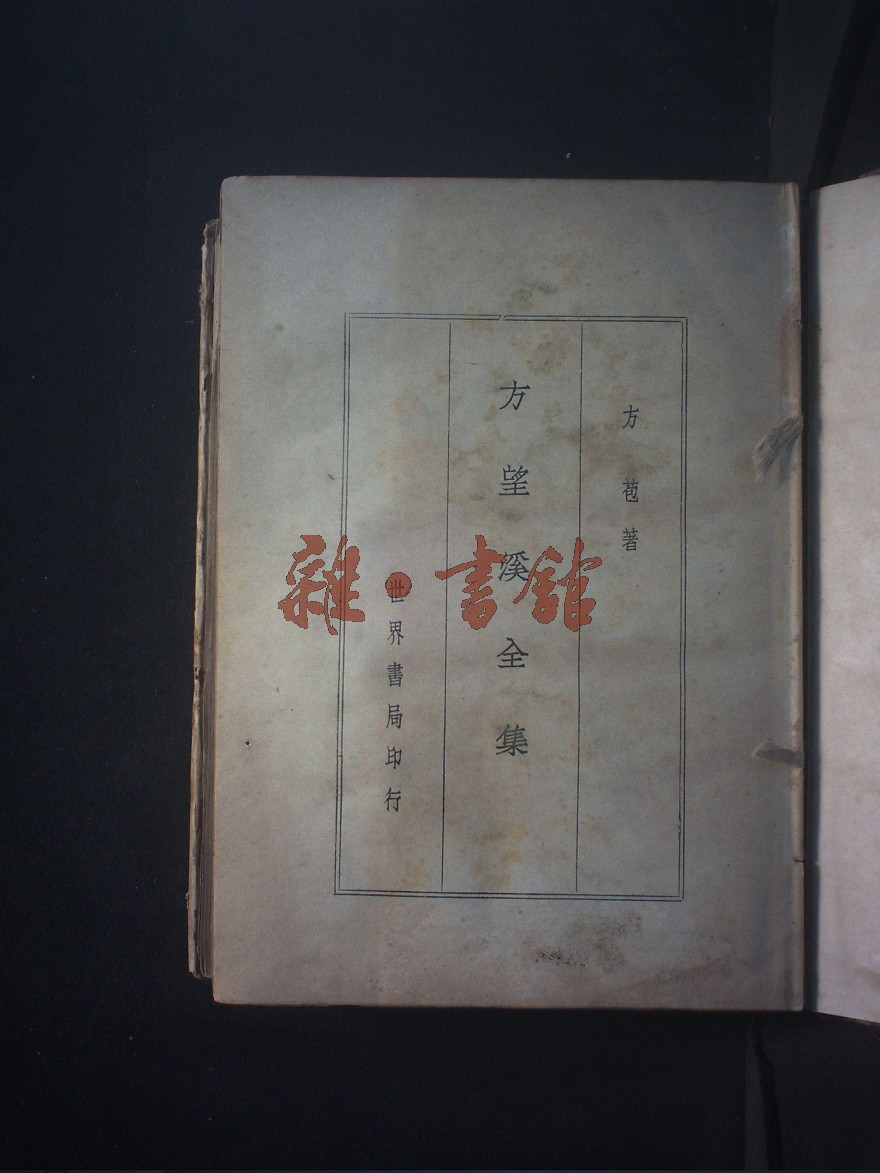 方苞著
方望溪全集
世界書局印行
雜·書館